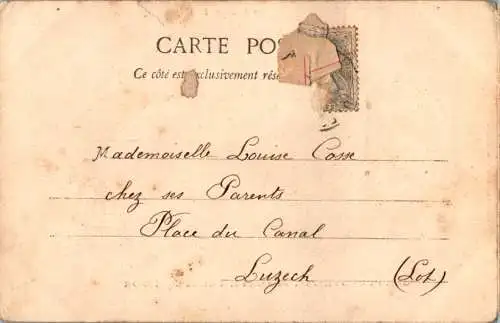 CARTE POS
Ce côté est exclusivement rése
Mademoiselle Louise Cosse
chez ses Parents
Place du Canal
Luzech (Lot)